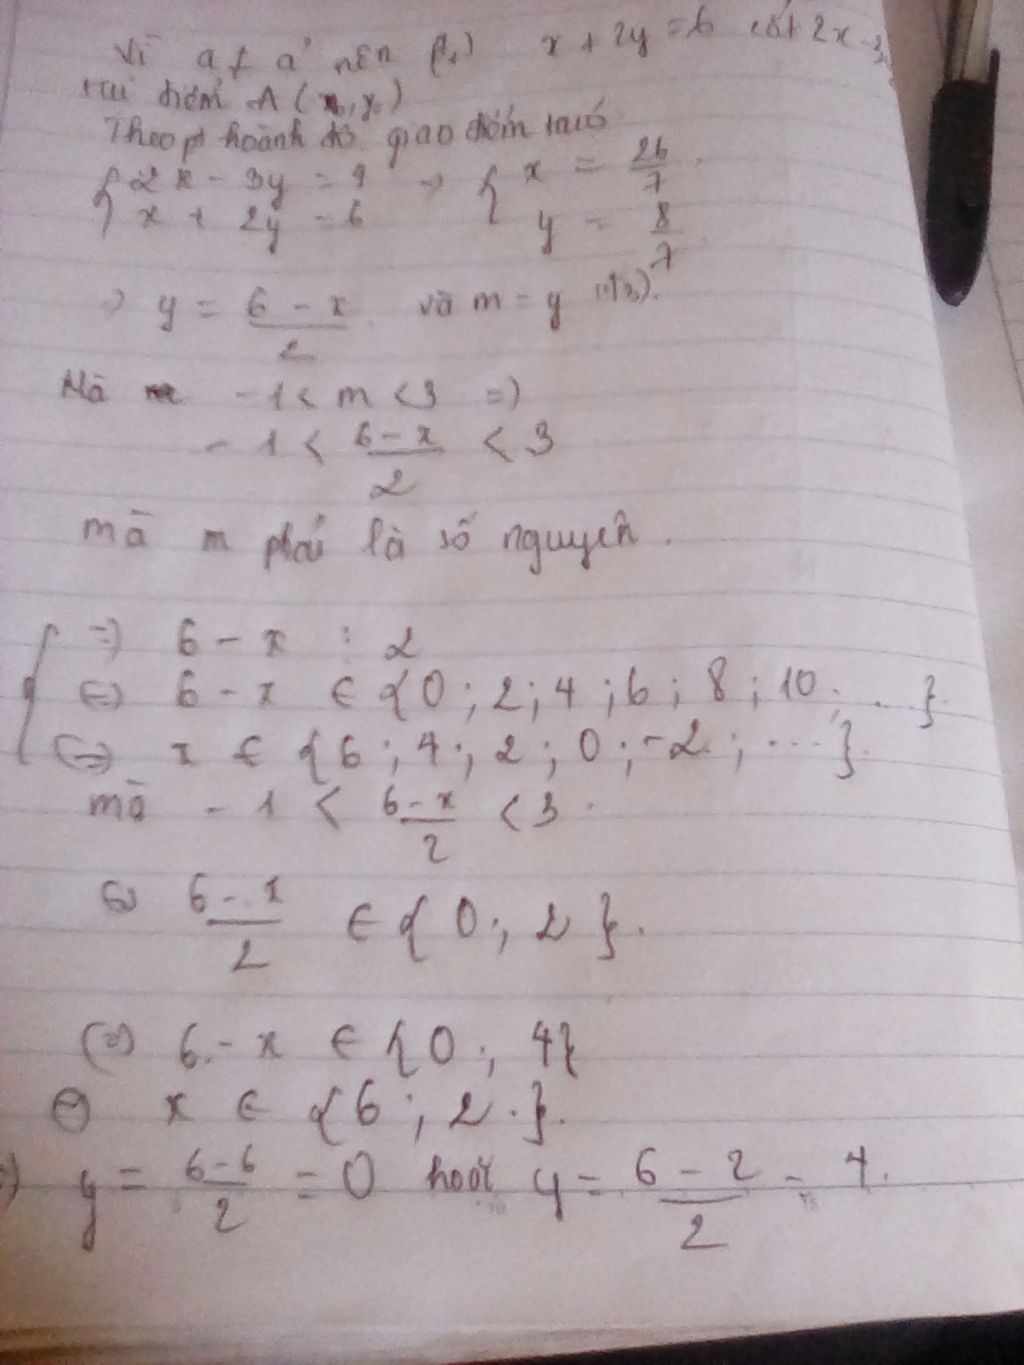 Vì a ≠ a' nên (d1) x + 2y = 6 cắt 2x - 3
tại điểm A (x, y)
Theo pt hoành độ giao điểm ta có
{ 2x - 3y = 4 => { x = 26/7
x + 2y = 6 y = 8/7
=> y = (6 - x)/2 và m = y
Mà - 1 < m < 3 =>
- 1 < (6 - x)/2 < 3
mà m phải là số nguyên.
=> 6 - x ⋮ 2
<=> 6 - x ∈ {0 ; 2 ; 4 ; 6 ; 8 ; 10 ; ... }.
<=> x ∈ {6 ; 4 ; 2 ; 0 ; -2 ; ... }.
mà - 1 < (6 - x)/2 < 3.
<=> (6 - x)/2 ∈ {0 ; 2}.
<=> 6 - x ∈ {0 ; 4}
<=> x ∈ {6 ; 2}.
=> y = (6 - 6)/2 = 0 hoặc y = (6 - 2)/2 = 4.